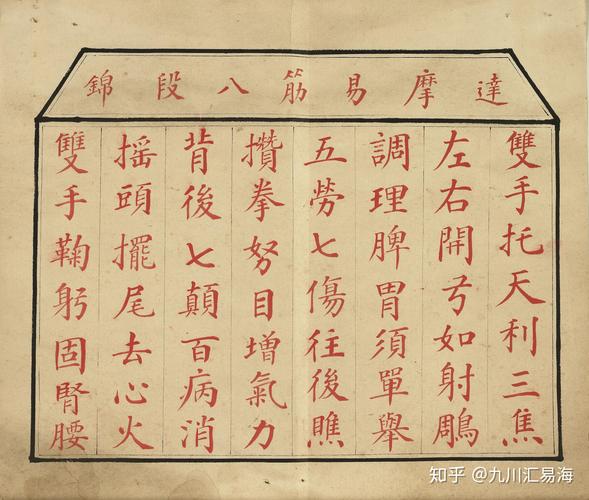 達摩易筋八段錦
雙手托天利三焦
左右開弓如射鵰
調理脾胃須單舉
五勞七傷往後瞧
攢拳努目增氣力
背後七顛百病消
搖頭擺尾去心火
雙手鞠躬固腎腰
知乎 @九川汇易海